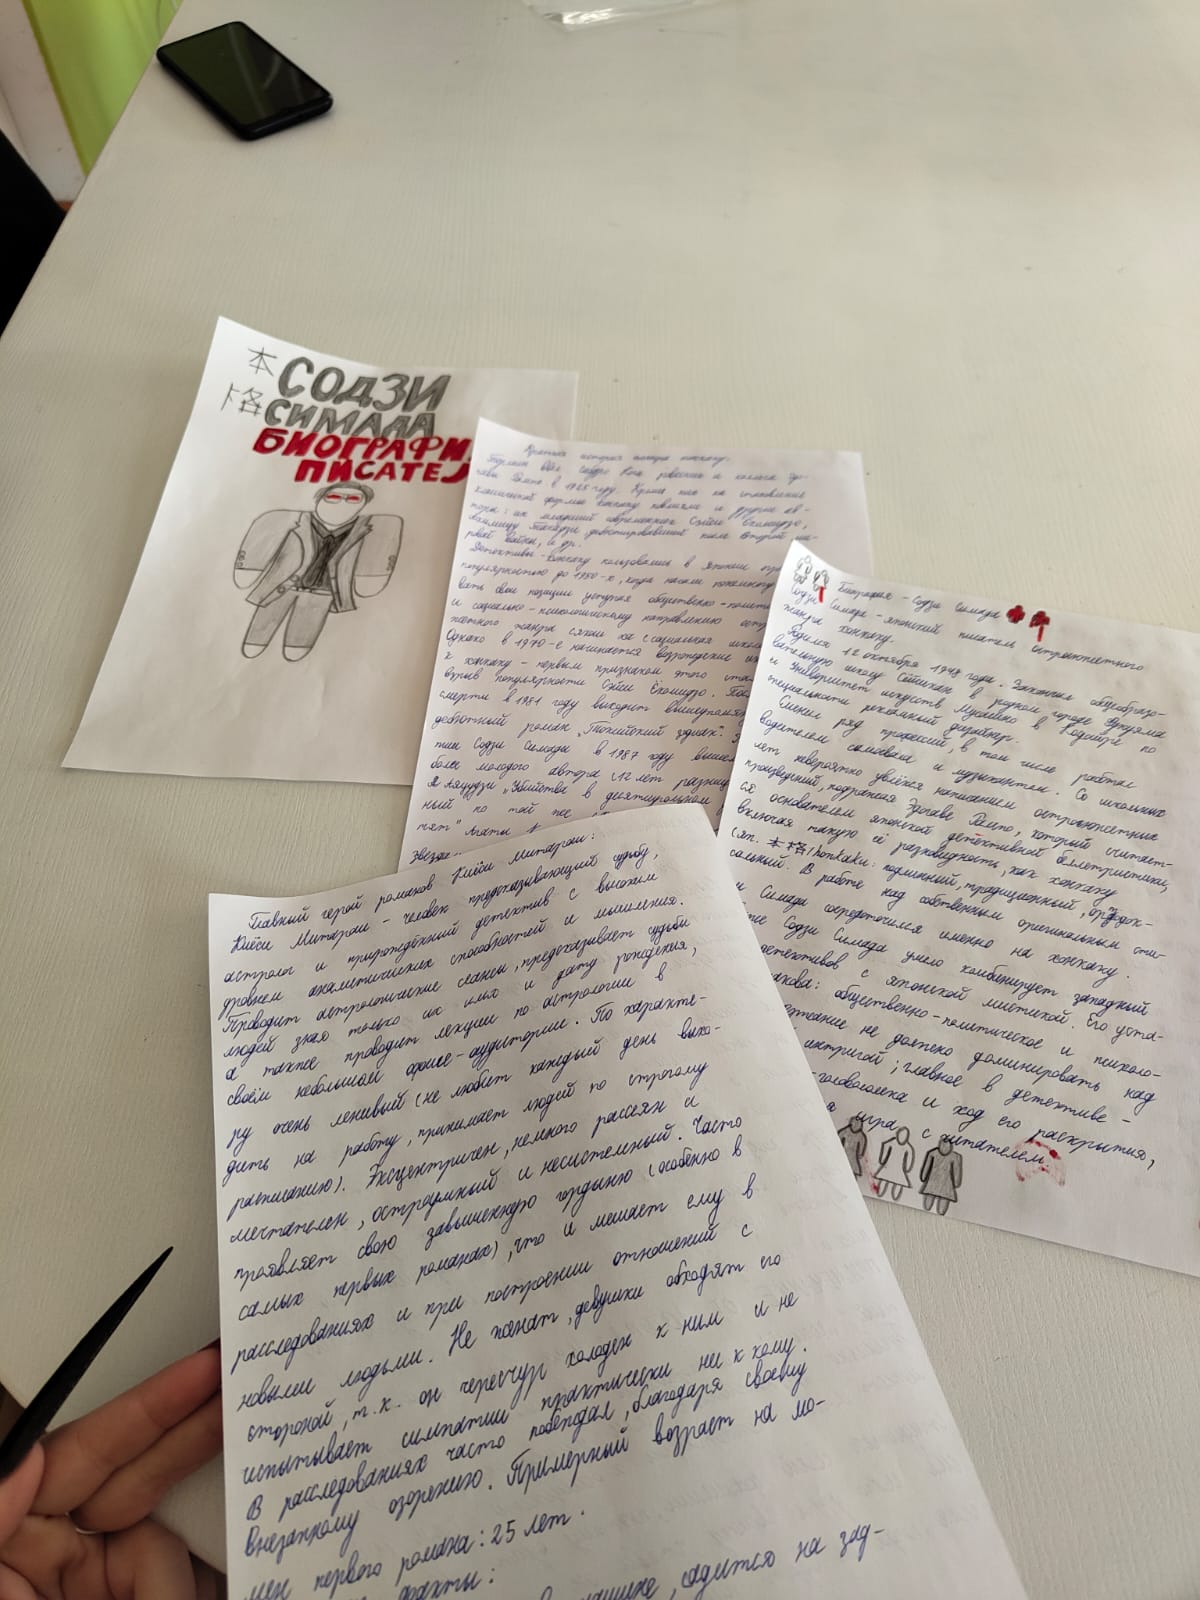 本
格
СОДЗИ
СИМАДА
БИОГРАФИ
ПИСАТЕЛ
Краткая история жанра хонкаку:
в 1925 году. Кроме них на становление
классической формы хонкаку повлияли и другие ав-
торы: их младший современник Сэйси Ёкомидзо,
дебютировавший после Второй ми-
ровой войны, и др.
Детективы-хонкаку пользовались в Японии
популярностью до 1950-х, когда начали понемногу
вать свои позиции уступая общественно-полити
и социально-психологическому направлению
жетного жанра
Однако в 1970-е начинается возрождение
к хонкаку - первым признаком этого ста
взрыв популярности Сэйси Ёкомидзо.
смерти в 1981 году выходит
дебютный роман „Токийский зодиак".
Содзи Симады в 1987 году вышел
более молодого автора (12 лет разни
„Убийства в десятиугольном
ный по той же
звезде..
Биография - Содзи Симада
Содзи Симада - японский писатель остросюжетного
жанра хонкаку.
Родился 12 октября 1948 года. Закончил общеобразо-
вательную школу в родном городе Фукуяма
и Университет искусств Мусасино в Кодайре по
специальности рекламный дизайнер.
Сменил ряд профессий, в том числе работал
водителем самосвала и музыкантом. Со школьных
лет невероятно увлёкся написанием остросюжетных
произведений, подражая Эдогаве Рампо, который считает-
ся основателем японской детективной беллетристики,
включая такую её разновидность, как хонкаку
(яп. 本格/honkaku: подлинный, традиционный, ортодок-
сальный. В работе над собственным оригинальным сти-
Симада сосредоточился именно на хонкаку.
Содзи Симада умело комбинирует западный
детективов с японской мистикой. Его уста-
акова: общественно-политическое и психоло-
ержание не должно доминировать над
интригой; главное в детективе -
-головоломка и ход его раскрытия,
игра с читателем
Главный герой романов Киёси Митараи:
Киёси Митараи - человек предсказывающий судьбу,
астролог и прирождённый детектив с высоким
уровнем аналитических способностей и мышления.
Проводит астрологические сеансы, предсказывает судьбы
людей зная только их имя и дату рождения,
а также проводит лекции по астрологии в
своём небольшом офисе-аудитории. По характе-
ру очень ленивый (не любит каждый день выхо-
дить на работу, принимает людей по строгому
расписанию). Эксцентричен, немного рассеян и
мечтателен, остроумный и несистемный. Часто
проявляет свою завышенную гордыню (особенно в
самых первых романах), что и мешает ему в
расследованиях и при построении отношений с
новыми людьми. Не женат, девушки обходят его
стороной, т.к. он чересчур холоден к ним и не
испытывает симпатии практически ни к кому.
В расследованиях часто побеждал, благодаря своему
внезапному озарению. Примерный возраст на мо-
мен первого романа: 25 лет.
факты:
садится на зад-